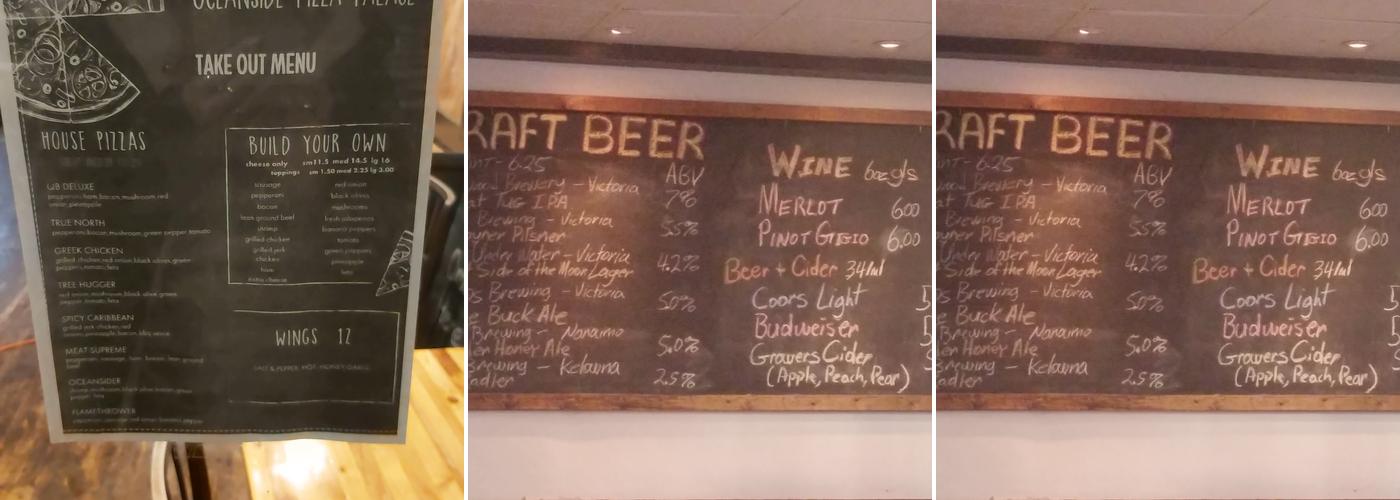 OCEANSIDE PIZZA PALACE
TAKE OUT MENU
HOUSE PIZZAS
QB DELUXE
pepperoni, ham, bacon, mushroom, red
onion, pineapple
TRUE NORTH
pepperoni, bacon, mushroom, green pepper, tomato
GREEK CHICKEN
grilled chicken, red onion, black olives, green
peppers, tomato, feta
TREE HUGGER
red onion, mushroom, black olive, green
pepper, tomato, feta
SPICY CARIBBEAN
grilled jerk chicken, red
onion, pineapple, bacon, bbq sauce
MEAT SUPREME
pepperoni, sausage, ham, bacon, lean ground
beef
OCEANSIDER
shrimp, mushroom, black olive, onion, green
pepper, feta
FLAMETHROWER
BUILD YOUR OWN
cheese only sm11.5 med 14.5 lg 16
toppings sm 1.50 med 2.25 lg 3.00
sausage red onion
pepperoni black olives
bacon mushrooms
lean ground beef fresh jalapenos
shrimp banana peppers
grilled chicken tomato
grilled jerk green peppers
chicken pineapple
ham feta
extra cheese
WINGS 12
SALT & PEPPER, HOT, HONEY GARLIC
RAFT BEER
6.25 ABV
Brewery - Victoria
Tug IPA 7%
Brewing - Victoria 5.5%
Pilsner
Under Water - Victoria 4.2%
Side of the Moon Lager
Brewing - Victoria 5.0%
Buck Ale
Brewing - Nanaimo 5.0%
Honey Ale
Brewing - Kelowna 2.5%
WINE 6oz gls
MERLOT 6.00
PINOT GIGIO 6.00
Beer + Cider 341ml
Coors Light
Budweiser
Growers Cider
(Apple, Peach, Pear)
RAFT BEER
6.25 ABV
Brewery - Victoria
Tug IPA 7%
Brewing - Victoria 5.5%
Pilsner
Under Water - Victoria 4.2%
Side of the Moon Lager
Brewing - Victoria 5.0%
Buck Ale
Brewing - Nanaimo 5.0%
Honey Ale
Brewing - Kelowna 2.5%
WINE 6oz gls
MERLOT 6.00
PINOT GIGIO 6.00
Beer + Cider 341ml
Coors Light
Budweiser
Growers Cider
(Apple, Peach, Pear)